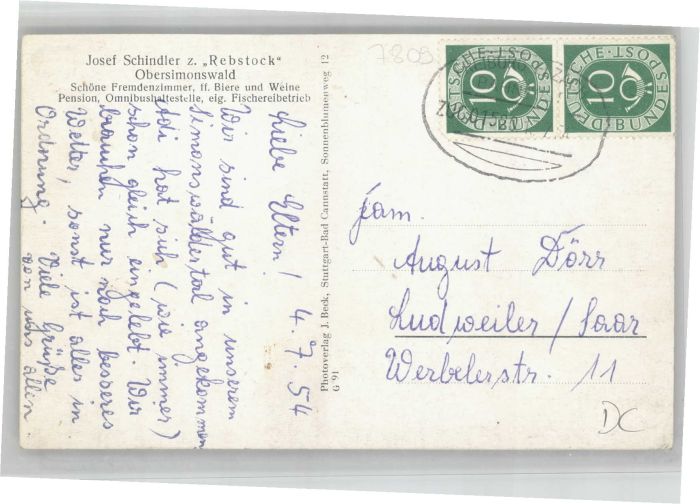 Josef Schindler z. „Rebstock“
Obersimonswald
Schöne Fremdenzimmer, ff. Biere und Weine
Pension, Omnibushaltestelle, eig. Fischereibetrieb
4.7.54
Liebe Eltern!
Wir sind gut in unserem
Simonswäldertal angekommen
hat sich (wie immer)
schon gleich eingelebt. Wir
brauchen nur noch besseres
Wetter, sonst ist alles in
Ordnung. Viele Grüße
von uns allen.
Photoverlag J. Beck, Stuttgart-Bad Cannstatt, Sonnenblumenweg 12
G 91
7809
DEUTSCHE·POST·
BUNDES
10
DEUTSCHE·POST·
BUNDES
10
ZUG
Fam.
August Dörr
Ludweiler / Saar
Werbelerstr. 11
DC